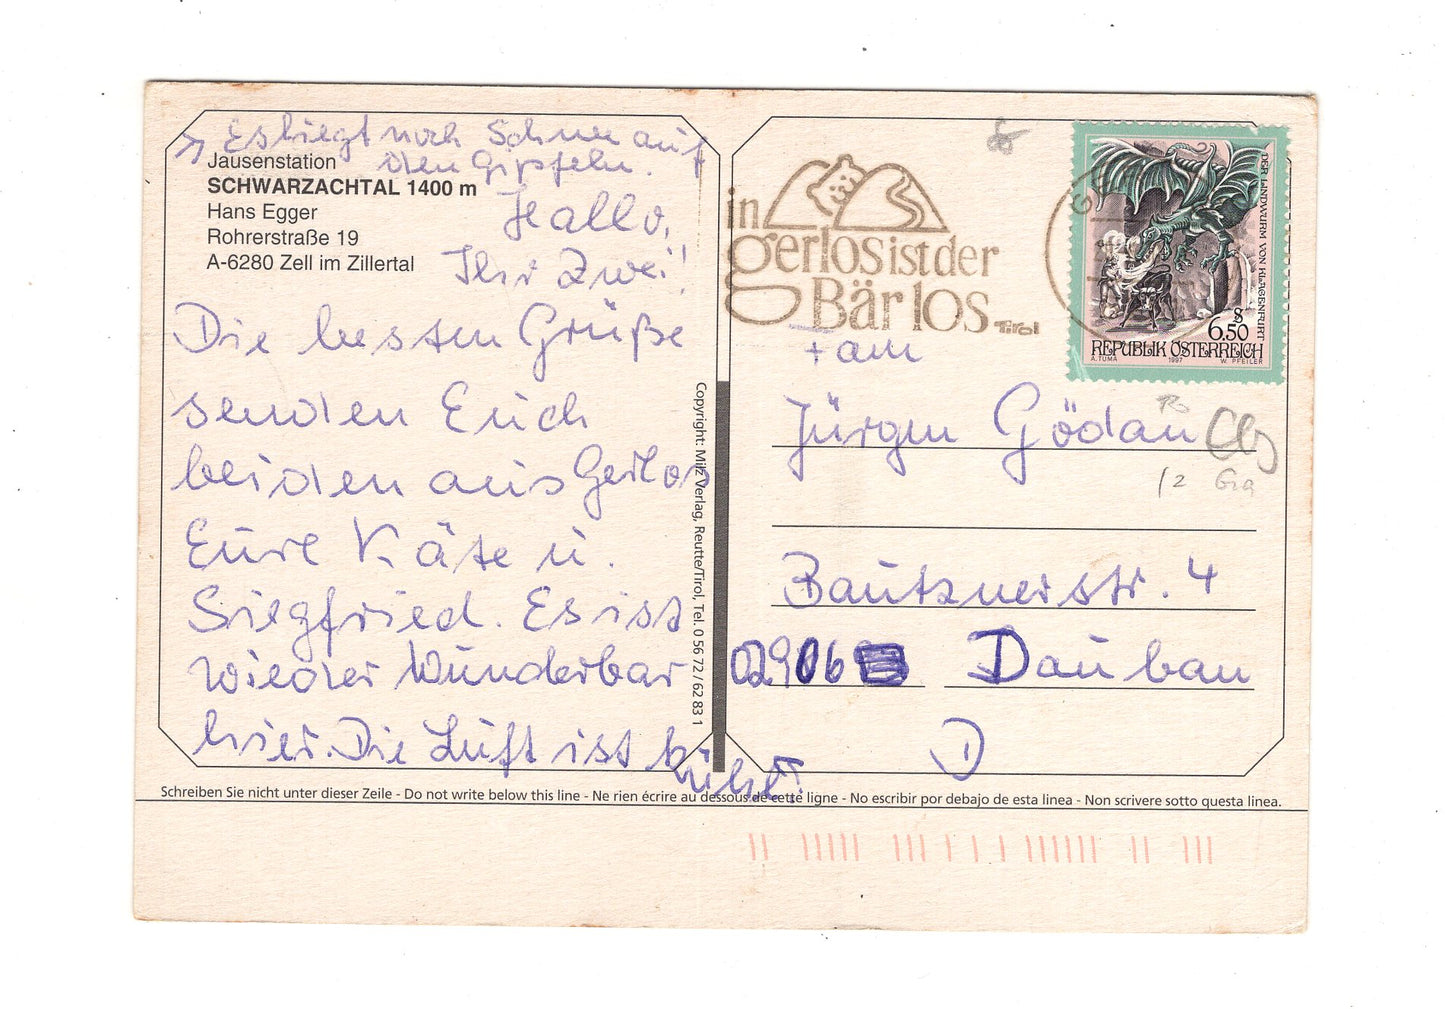 Es liegt noch Schnee auf
den Gipfeln.
Jausenstation
SCHWARZACHTAL 1400 m
Hans Egger
Rohrerstraße 19
A-6280 Zell im Zillertal
Hallo,
Ihr Zwei!
Die besten Grüße
senden Euch
beiden aus Gerlos
Eure Käte u.
Siegfried. Es ist
wieder Wunderbar
hier. Die Luft ist kühl.
Copyright: Milz Verlag, Reutte/Tirol, Tel. 0 56 72 / 62 83 1
in
gerlos ist der
Bär los
Tirol
DER LINDWURM VON KLAGENFURT
S
6.50
REPUBLIK ÖSTERREICH
A. TUMA 1997 W. PFEILER
+ am
Jürgen Gödan
/2
Bautznerstr. 4
02906 Dauban
D
Schreiben Sie nicht unter dieser Zeile - Do not write below this line - Ne rien écrire au dessous de cette ligne - No escribir por debajo de esta linea - Non scrivere sotto questa linea.